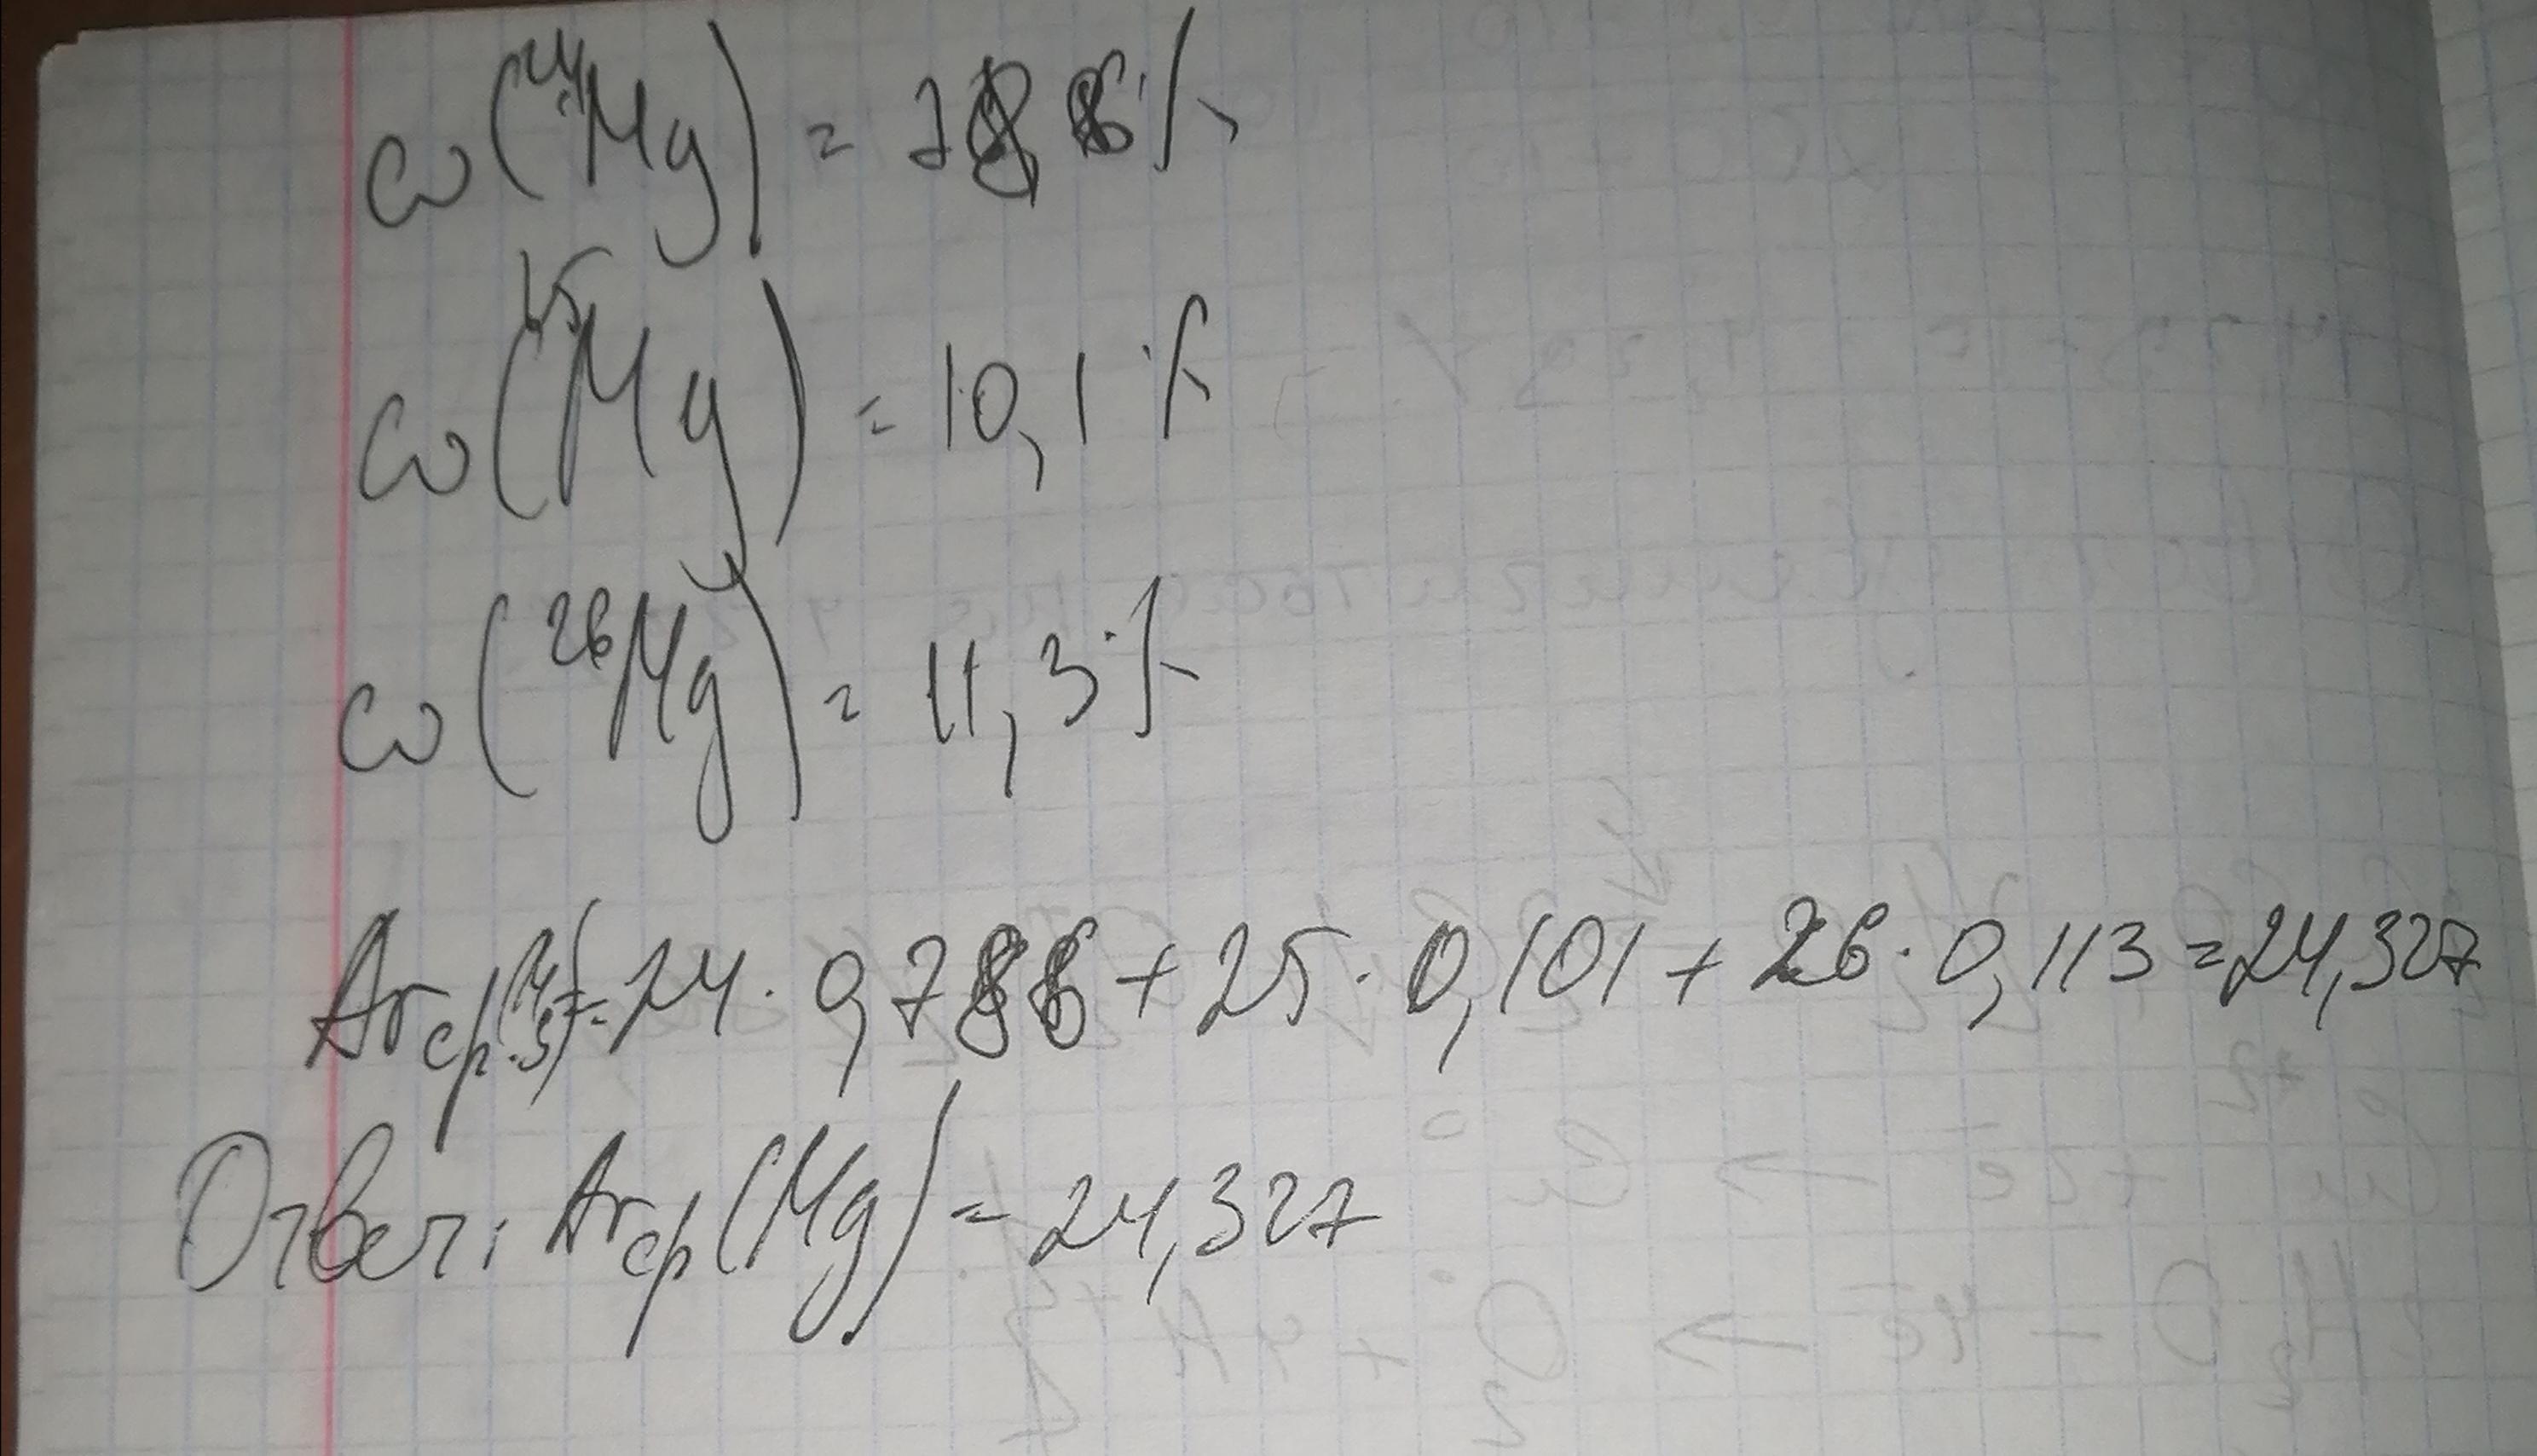 ω(²⁴Mg) = 78,6%
ω(²⁵Mg) = 10,1%
ω(²⁶Mg) = 11,3%
Ar ср.(Mg) = 24 · 0,786 + 25 · 0,101 + 26 · 0,113 = 24,327
Ответ: Ar ср (Mg) = 24,327